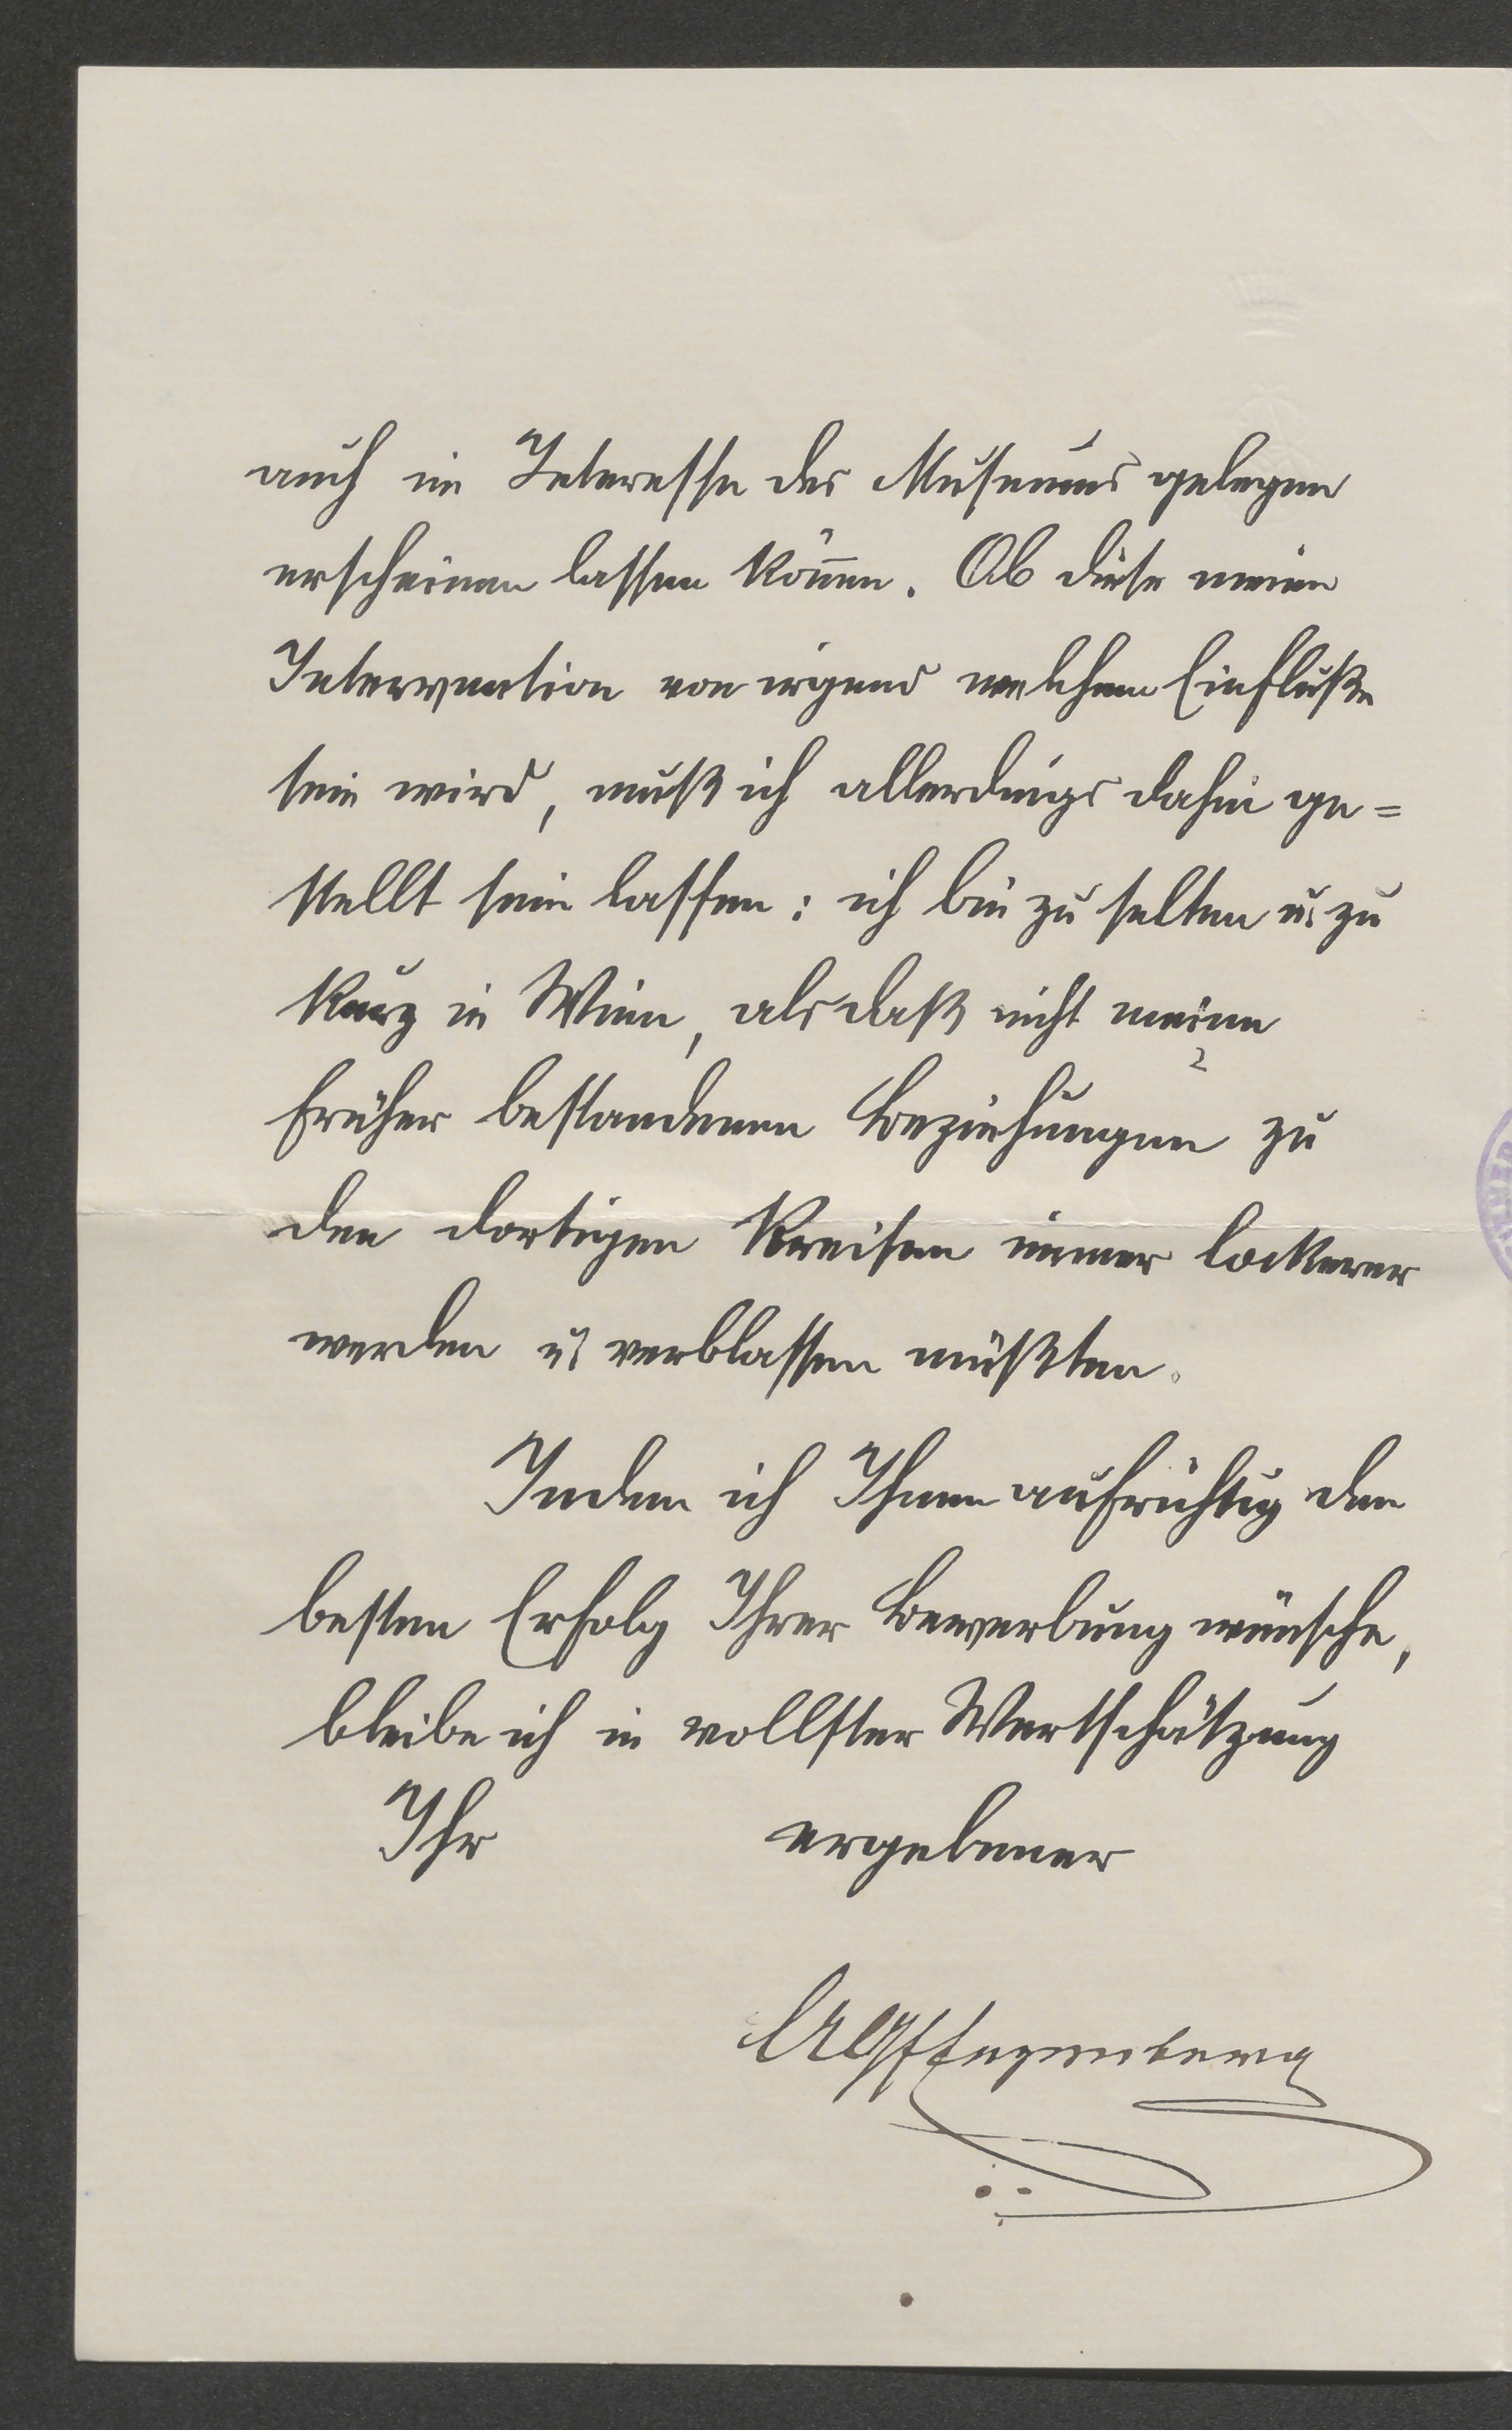 auch im Interesse des Museums gelegen
erscheinen lassen können. Ob diese meine
Intervention von irgend welchem Einfluße
sein wird, muß ich allerdings dahin ge=
stellt sein lassen: ich bin zu selten u. zu
kurz in Wien, als daß nicht meine
früher bestandenen Beziehungen zu
den dortigen Kreisen immer lockerer
werden u. verblassen müßten.
Indem ich Ihnen aufrichtig den
besten Erfolg Ihrer Bewerbung wünsche,
bleibe ich in vollster Wertschätzung
Ihr ergebener